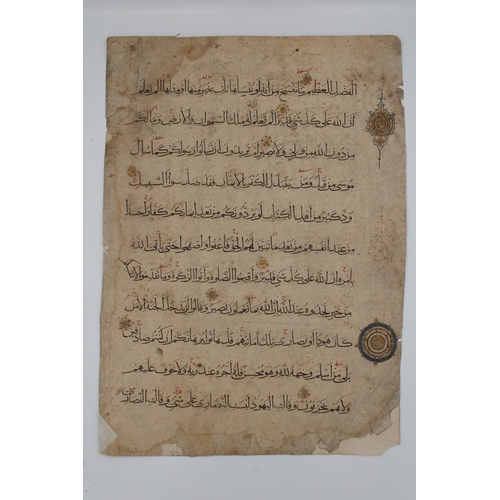 الفضل العظيم ما ننسخ من آية أو ننسها نأت بخير منها أو مثلها ألم تعلم
أن الله على كل شيء قدير ألم تعلم أن الله له ملك السموات والأرض وما لكم
من دون الله من ولي ولا نصير أم تريدون أن تسألوا رسولكم كما سئل
موسى من قبل ومن يتبدل الكفر بالإيمان فقد ضل سواء السبيل
ود كثير من أهل الكتاب لو يردونكم من بعد إيمانكم كفارا حسدا
من عند أنفسهم من بعد ما تبين لهم الحق فاعفوا واصفحوا حتى يأتي الله
بأمره إن الله على كل شيء قدير وأقيموا الصلوة وآتوا الزكوة وما تقدموا لأنفسكم
من خير تجدوه عند الله إن الله بما تعملون بصير وقالوا لن يدخل الجنة إلا من
كان هودا أو نصارى تلك أمانيهم قل هاتوا برهانكم إن كنتم صادقين
بلى من أسلم وجهه لله وهو محسن فله أجره عند ربه ولا خوف عليهم
ولا هم يحزنون وقالت اليهود ليست النصارى على شيء وقالت النصارى